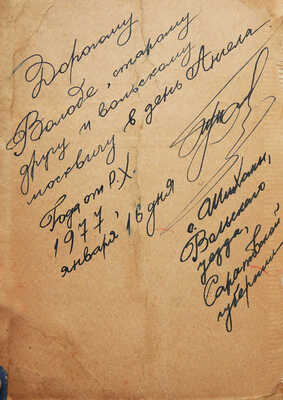 Дорогому
Володе, старому
другу и вольскому
москвичу в день Ангела.
Года от Р.Х.
1977,
января 16 дня
с. Шиханы,
Вольского
уезда,
Саратовской
губернии